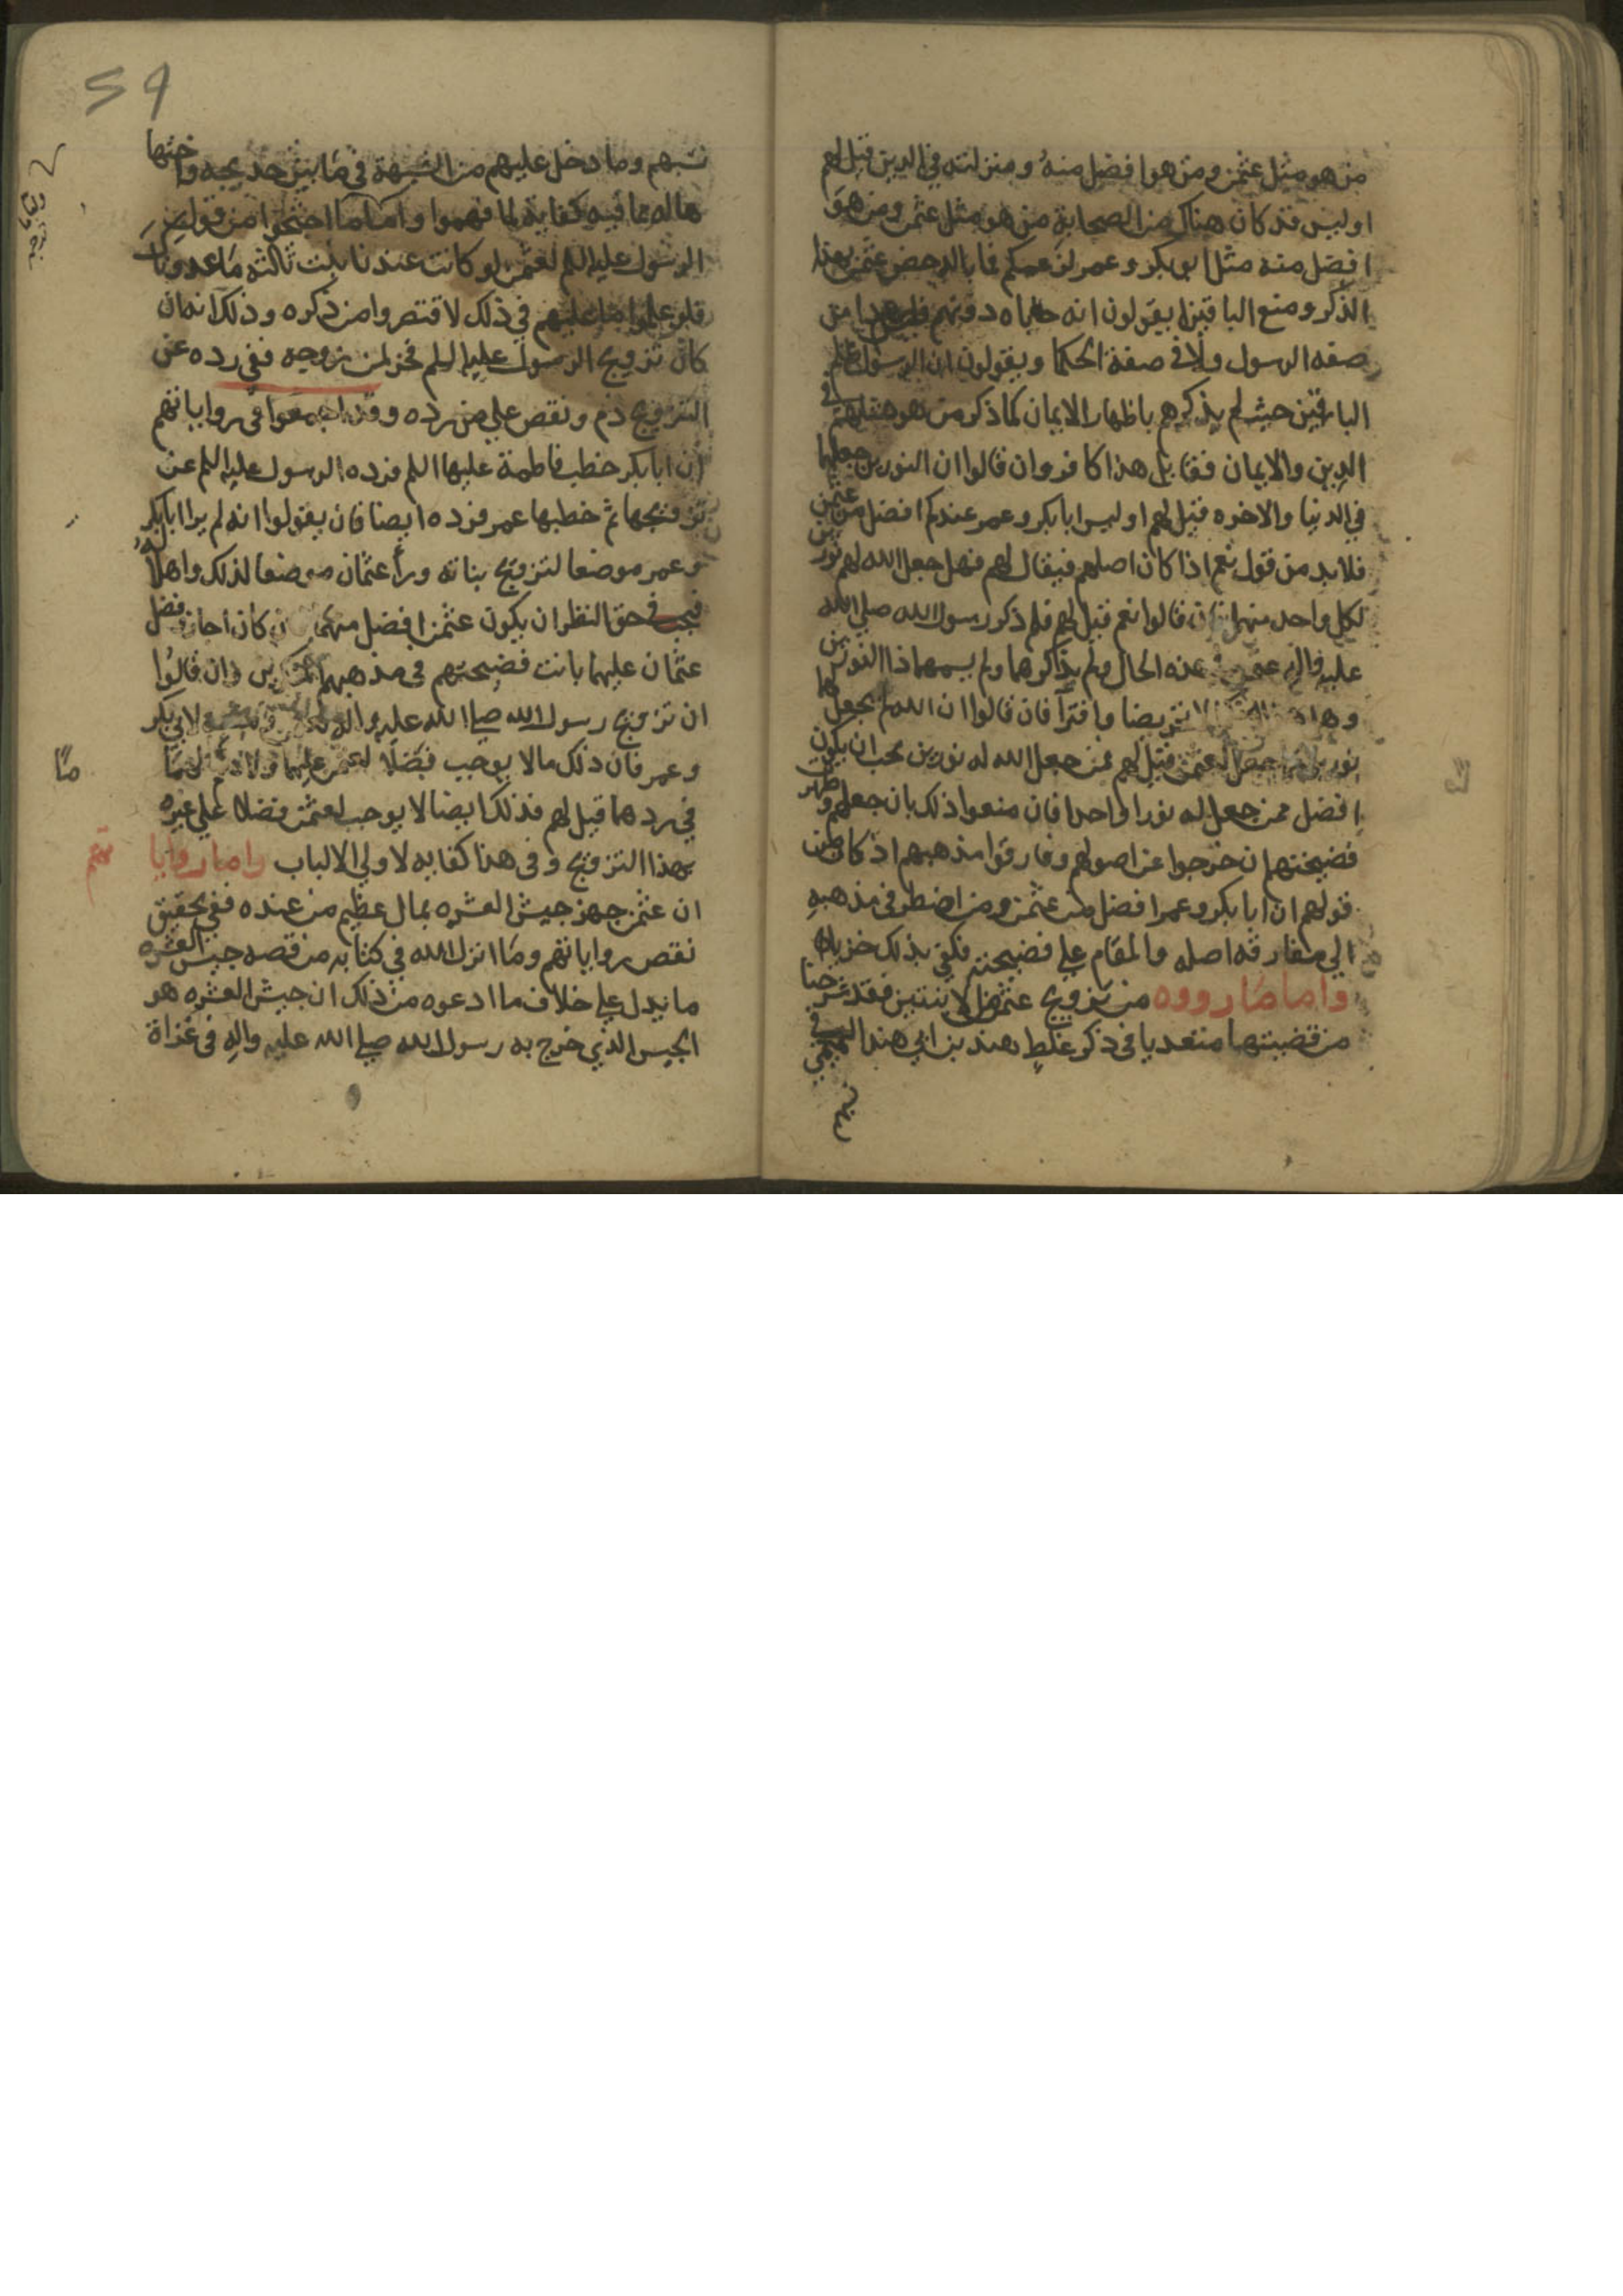 من هو مثل عثمن ومن هو افضل منه ومنزلته في الدين قيل لهم
اوليس قد كان هناك من الصحابة من هو مثل عثمن ومن هو
افضل منه مثل ابي بكر وعمر لزعمكم فما باله خص عثمن بهذا
الذكر ومنع الباقين ايقولون انه حاباه دونهم فليس هذا من
صفه الرسول ولا في صفة الحكما ويقولون ان الرسول ظلم
الباقين حيث لم يذكرهم باظهار الايمان كما ذكر من هو مثلهم في
الدين والايمان فقايل هذا كافر وان قالوا ان النورين جعلها
في الدنيا والاخره قيل لهم اوليس ابا بكر وعمر عندكم افضل من عثمن
فلا بد من قول نعم اذا كان اصلهم فيقال لهم فهل جعل الله لهم نورين
لكل واحد منهما فان قالوا نعم قيل لهم فلم ذكر رسول الله صلي الله
عليه واله عثمن في هذه الحال ولم يذكرهما ولم يسمهما ذا النورين
وهل هذا الا تخرصا وافترآ فان قالوا ان الله لم يجعل لهما
نورين كما جعل لعثمن قيل لهم فمن جعل الله له نورين يجب ان يكون
افضل ممن جعل له نورا واحدا فان منعوا ذلك بان جعلهم وظهرت
فضيحتهم ان خرجوا عن اصولهم وفارقوا مذهبهم اذ كان من
قولهم ان ابا بكر وعمر افضل من عثمن ومن اضطر في مذهبه
الي مفارقه اصله والمقام علي فضيحته فكفي بذلك خزيا
واما ما رووه من تزويج عثمن الابنتين فقد شرحنا
من قضيتهما متعديا في ذكر غلط هند بن ابي هند التميمي في
نسبهم وما دخل عليهم من الشبهة في ما بين خديجه واختها
هاله مما فيه كفاية لما فهموا واما ما احتجوا من قول
الرسول عليه السلم لعثمن لو كانت عندنا بنت ثالثه ما عدوناك
فلو علموا ما عليهم في ذلك لاقتصروا من ذكره وذلك انه ان
كان تزويج الرسول عليه السلم فخر لمن زوجه ففي رده عن
التزويج ذم ونقص علي من رده وقد اجمعوا في رواياتهم
ان ابا بكر خطب فاطمة عليها السلم فرده الرسول عليه السلم عن
تزويجها ثم خطبها عمر فرده ايضا فان يقولوا انه لم يرا ابا بكر
وعمر موضعا لتزويج بناته ورأ عثمان موضعا لذلك واهلا له
فيجب في حق النظر ان يكون عثمن افضل منهما فان كان اجازوا فضل
عثمان عليهما بانت فضيحتهم في مذهبهم وان قالوا
ان تزويج رسول الله صلي الله عليه واله لعثمن لابي بكر
وعمر فان ذلك مما لا يوجب فضلا لعثمن عليهما ولا لهما
في ردهما قيل لهم فذلك ايضا لا يوجب لعثمن فضلا علي غيره
بهذا التزويج وفي هذا كفايه لاولي الالباب واما روايا تهم
ان عثمن جهز جيش العشره بمال عظيم من عنده ففي تحقيق
نقص رواياتهم وما انزل الله في كتابه من قصه جيش العشره
ما يدل علي خلاف ما ادعوه من ذلك ان جيش العشره هو
الجيس الذي خرج به رسول الله صلي الله عليه واله في غزاة